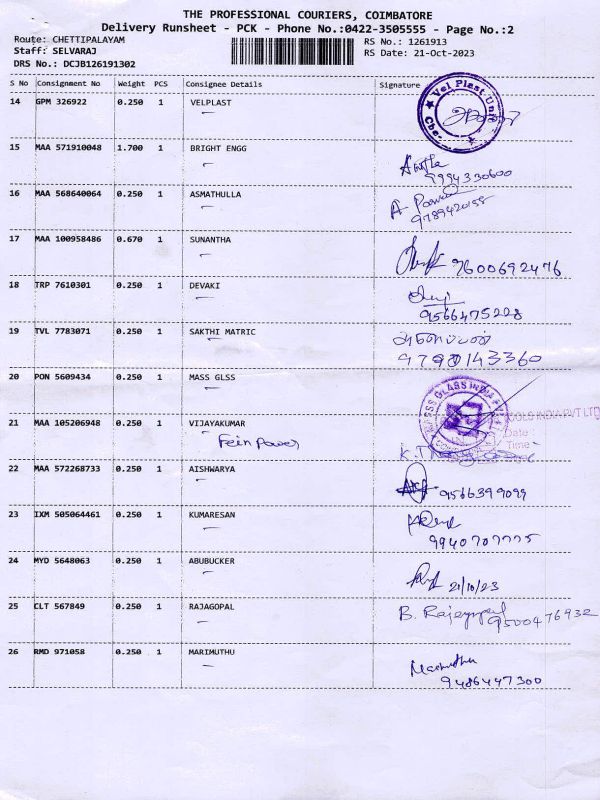 THE PROFESSIONAL COURIERS, COIMBATORE
Delivery Runsheet - PCK - Phone No.:0422-3505555 - Page No.:2
Route: CHETTIPALAYAM
RS No.: 1261913
Staff: SELVARAJ
RS Date: 21-Oct-2023
DRS No.: DCJB126191302
S No Consignment No Weight PCS Consignee Details Signature
14 GPM 326922 0.250 1 VELPLAST
Vel Plast Unit
Cbe
15 MAA 571910048 1.700 1 BRIGHT ENGG
9994330600
16 MAA 568640064 0.250 1 ASMATHULLA
A
17 MAA 100958486 0.670 1 SUNANTHA
7600692476
18 TRP 7610301 0.250 1 DEVAKI
9566475228
19 TVL 7783071 0.250 1 SAKTHI MATRIC
9790143360
20 PON 5609434 0.250 1 MASS GLSS
GLASS INDIA
TOOLS INDIA PVT LTD
21 MAA 105206948 0.250 1 VIJAYAKUMAR
Date :
Fein power
Time :
22 MAA 572268733 0.250 1 AISHWARYA
9566399099
23 IXM 505064461 0.250 1 KUMARESAN
9940707775
24 MYD 5648063 0.250 1 ABUBUCKER
21/10/23
25 CLT 567849 0.250 1 RAJAGOPAL
B. Rajagopal
9500476932
26 RMD 971058 0.250 1 MARIMUTHU
Marimuthu
9486447300